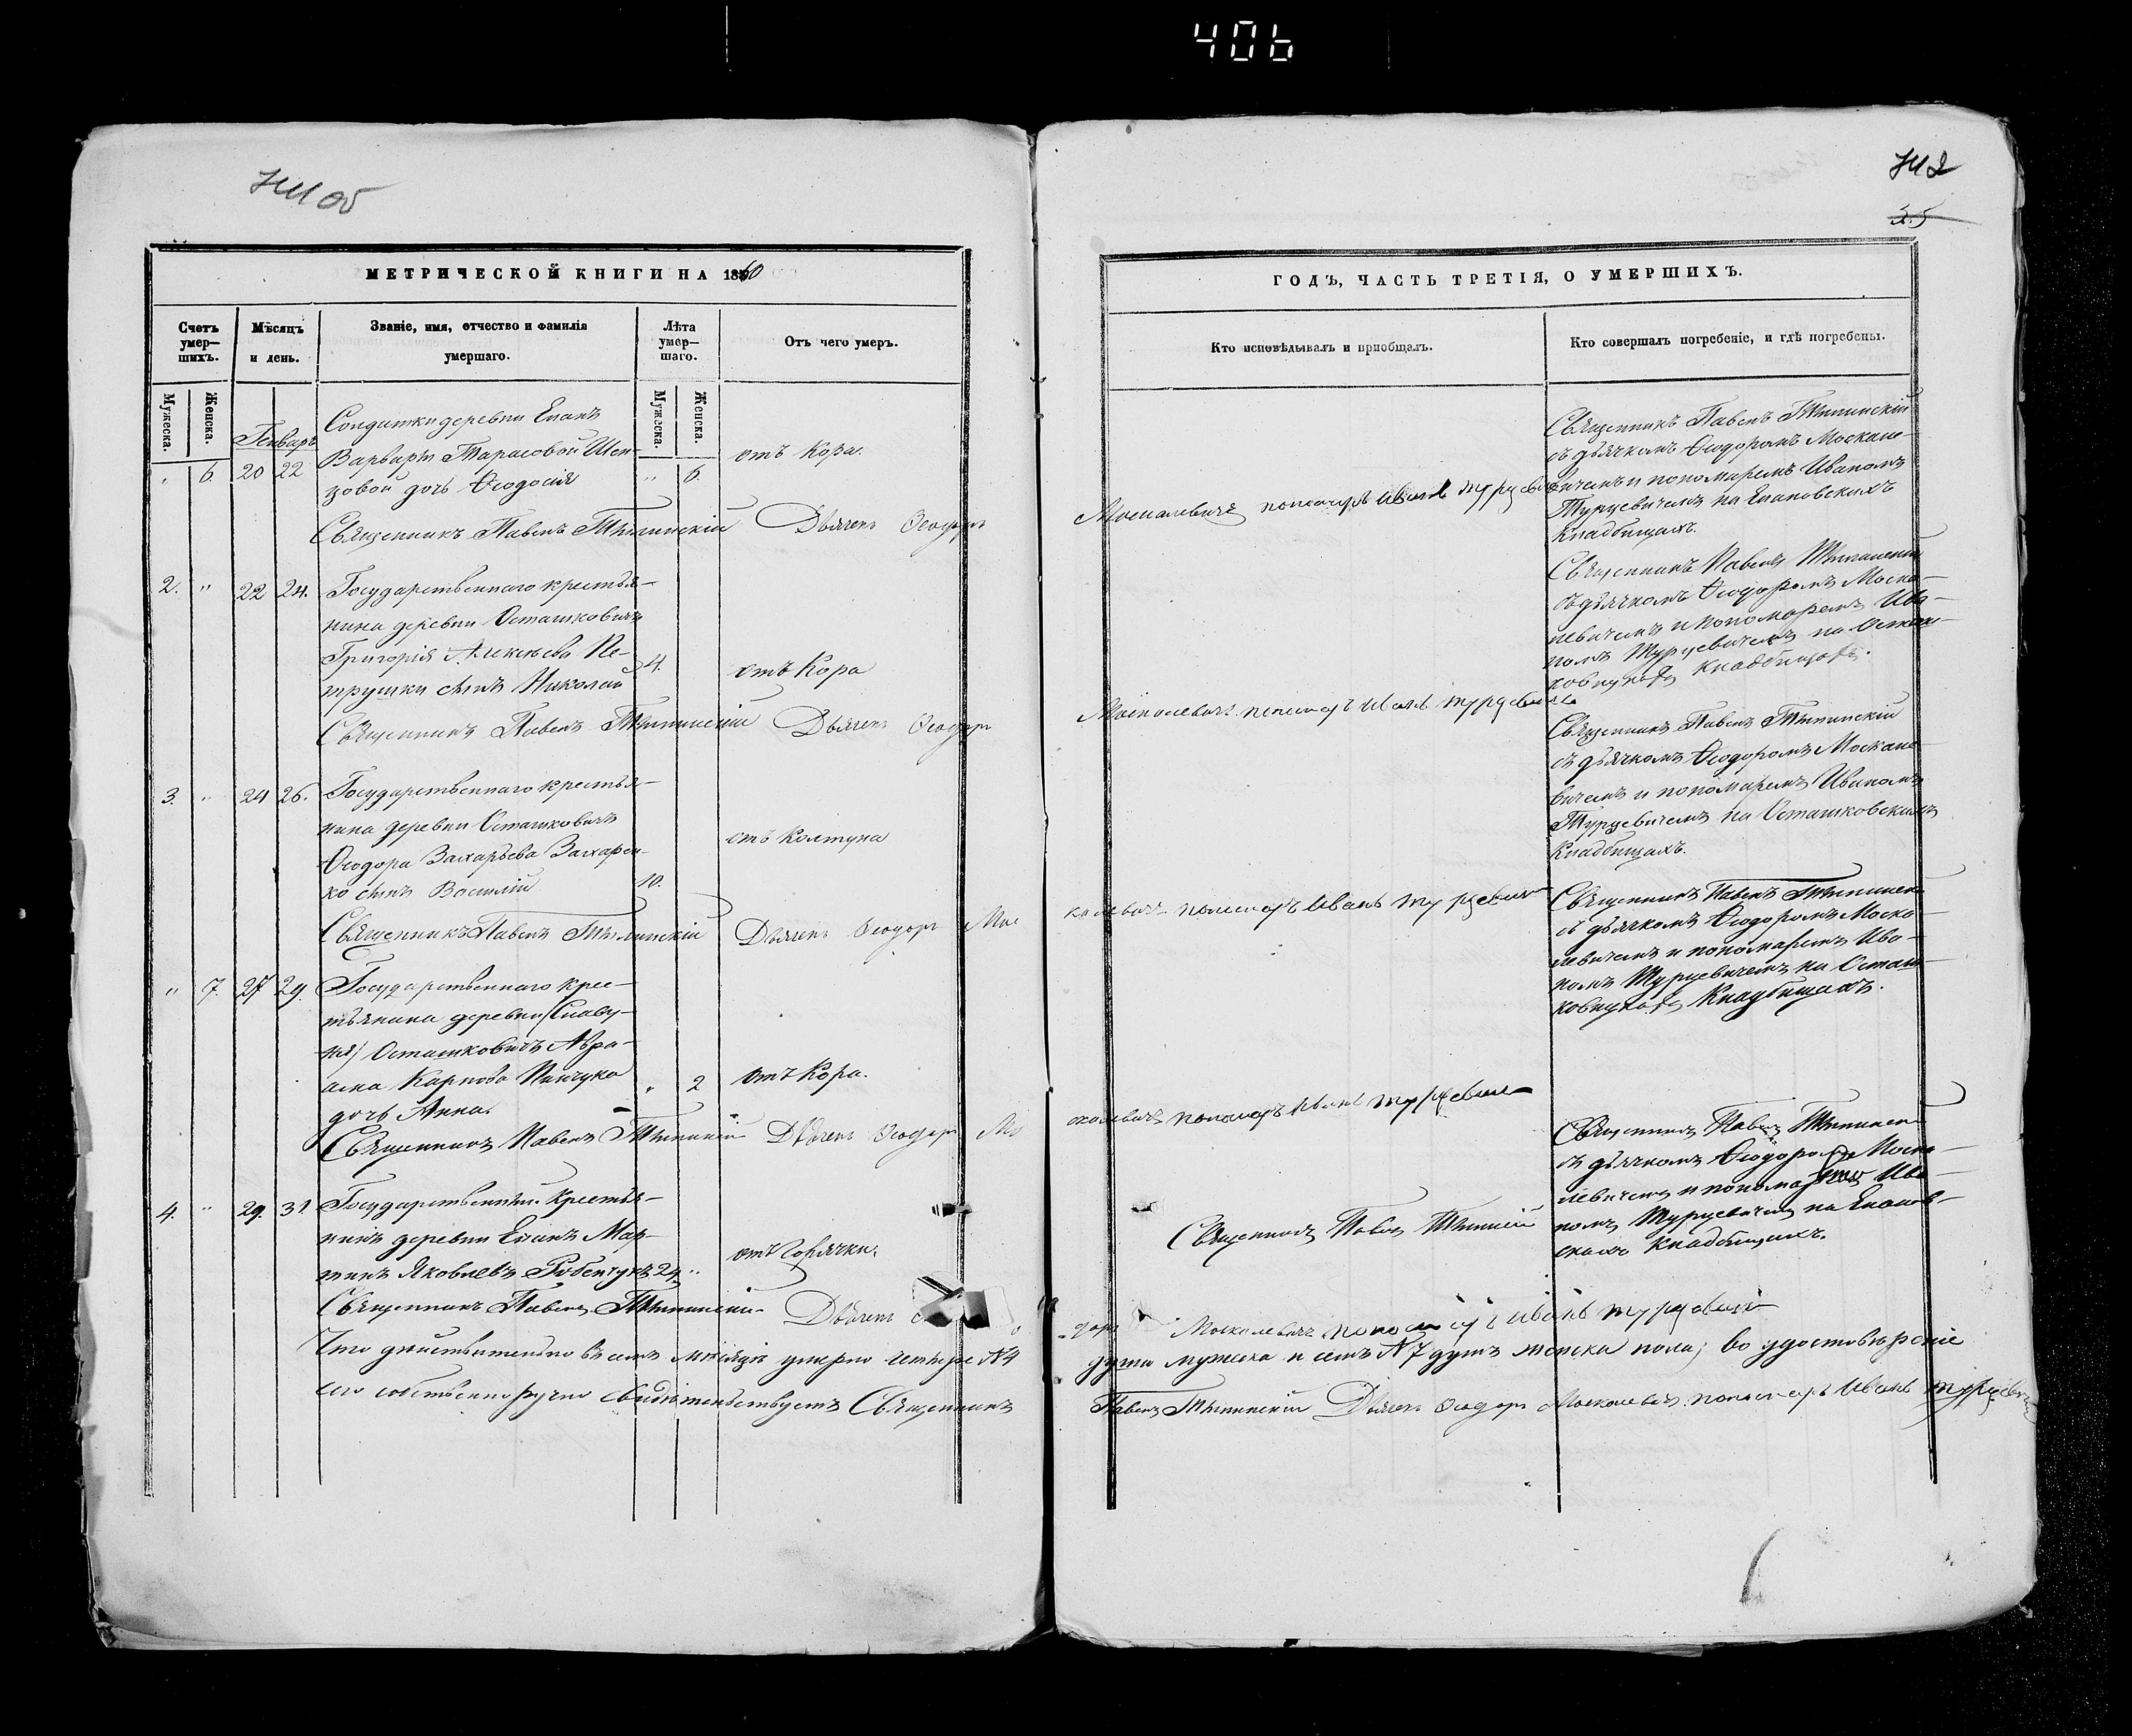 406
МЕТРИЧЕСКОЙ КНИГИ НА 1860
Счетъ умер—шихъ.
Мѣсяцъ и день.
Званіе, имя, отчество и фамилія умершаго.
Лѣта умер—шаго.
Отъ чего умеръ.
Мужеска.
Женска.
Мужеска.
Женска.
Генварь
„ 6. 20 22
Солдатки деревни Епанъ
Варвары Тарасовой Шев-
цовой дочь Ѳеодосія
„ 6.
отъ Кора.
Священникъ Павелъ Дьячекъ Ѳеодоръ
2. „ 22 24.
Государственнаго крестья-
нина деревни Осташковичъ
Григорія Алексѣева Пе-
трушки сынъ Николай
4.
отъ Кора
Священникъ Павелъ Дьячекъ Ѳеодоръ
3. „ 24 26.
Государственнаго крестья-
нина деревни Осташковичъ
Ѳеодора Захарьева Захарен-
ко сынъ Василій
10.
отъ Колтуна
Священникъ Павелъ Дьячекъ Ѳеодоръ Мос
„ 7. 27 29.
Государственнаго крес-
тьянина деревни
Осташковичъ Авра-
ама Карпова Пинчука
дочь Анна.
„ 2
отъ Кора.
Священникъ Павелъ Дьячекъ Ѳеодоръ Мо
4. „ 29. 31.
Государственный крестья-
нинъ деревни Епанъ Мар-
тинъ Яковлевъ
24. „
отъ Горячки.
Священникъ Павелъ Дьячекъ
Что дѣйствительно въ семъ мѣсяцѣ умерло четыре №4
сіе собственноручно свидѣтельствуетъ Священникъ
742
35
ГОДЪ, ЧАСТЬ ТРЕТІЯ, О УМЕРШИХЪ.
Кто исповѣдывалъ и приобщалъ.
Кто совершалъ погребеніе, и гдѣ погребены.
Москалевичъ пономарь Иванъ Турцевичъ
Священникъ Павелъ
съ дьячкомъ Ѳеодоромъ Москале-
вичемъ и пономаремъ Иваномъ
Турцевичемъ на Епановскихъ
Кладбищахъ.
Москалевичъ пономарь Иванъ Турцевичъ
Священникъ Павелъ
съ дьячкомъ Ѳеодоромъ Моска-
левичемъ и пономаремъ Ива-
номъ Турцевичемъ на Осташ-
ковскихъ Кладбищахъ.
Священникъ Павелъ
съ дьячкомъ Ѳеодоромъ Москале-
вичемъ и пономаремъ Иваномъ
Турцевичемъ на Осташковскихъ
Кладбищахъ.
калевичъ пономарь Иванъ Турцевичъ
Священникъ Павелъ
съ дьячкомъ Ѳеодоромъ Моска-
левичемъ и пономаремъ Ива-
номъ Турцевичемъ на Осташ-
ковскихъ Кладбищахъ.
скалевичъ пономарь Иванъ Турцевичъ
Священникъ Павелъ
съ дьячкомъ Ѳеодоромъ Моска-
левичемъ и пономаремъ Ива-
номъ Турцевичемъ на Епанов-
скихъ Кладбищахъ.
Священникъ Павелъ
доръ Москалевичъ пономарь Иванъ Турцевичъ
души мужеска и семь №7 душъ женска пола; во удостовѣреніе
Павелъ Дьячекъ Ѳеодоръ Москалевичъ пономарь Иванъ Турцевичъ